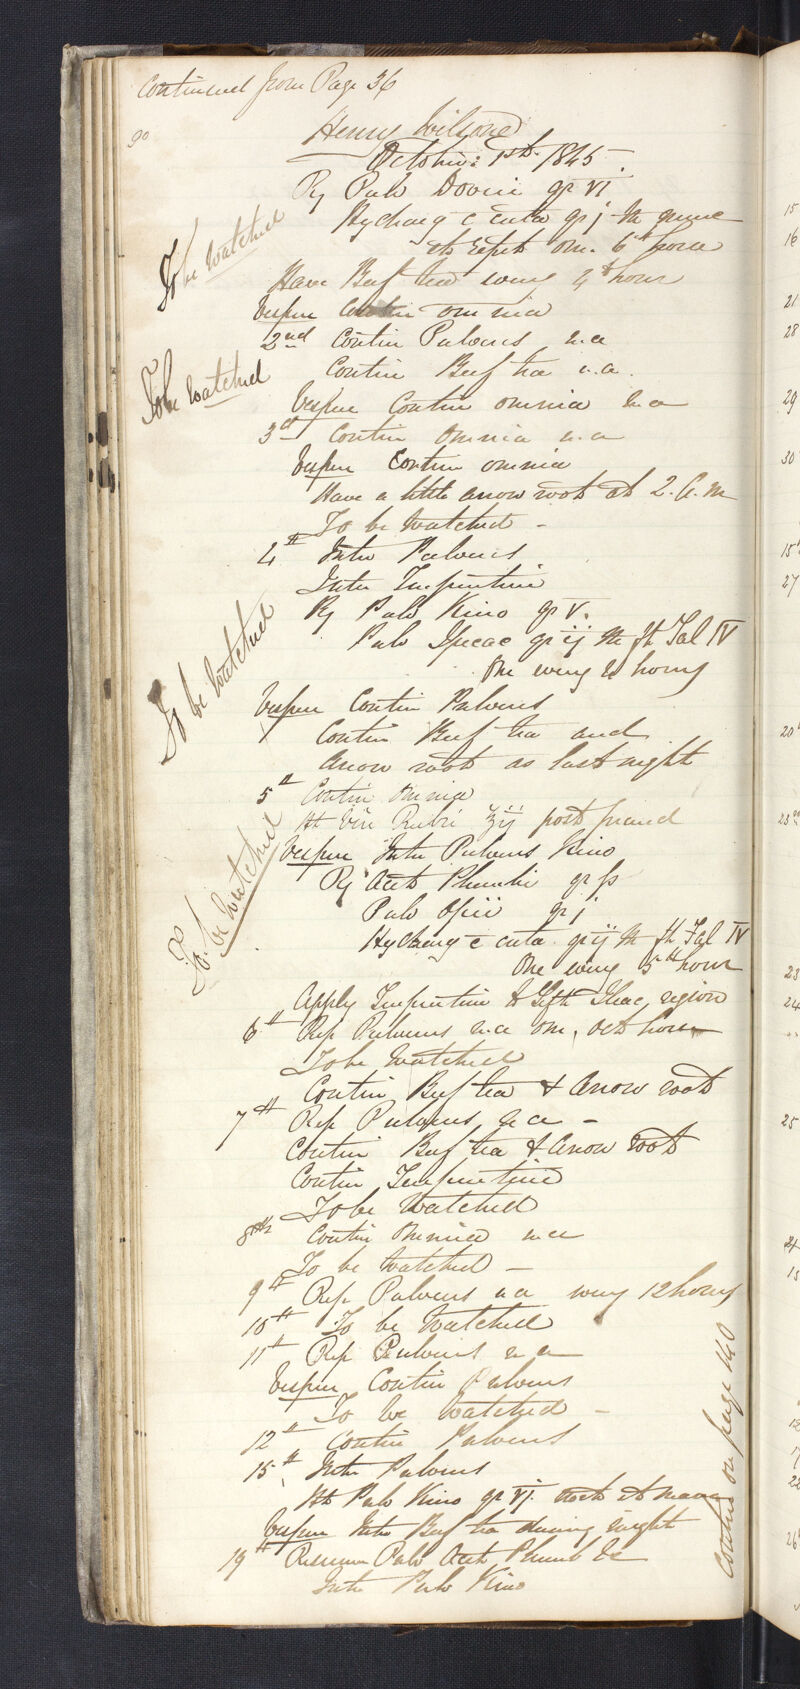 Continued from Page 36
90
Henry Wilson
October 1st 1845
Rx Pulv Doveri gr vj
Hydrarg c creta gr j M
et repet om. 6th hora
To be watched
Have Beef tea every 4th hour
Vespere Contin omnia
2nd Contin Pulveres u.a
Contin Beef tea u.a.
To be watched
Vespere Contin omnia u.a
3d Contin Omnia u.a
Vespere Contin omnia
Have a little arrow root at 2. A.M
To be watched –
4th Intr Pulveres
Intr Turpentine
Rx Pulv Kino gr v.
Pulv Ipecac gr ij M ft Tal IV
One every hours
To be watched
Vespere Contin Pulveres
Contin Beef tea and
arrow root as last night
5th Contin Omnia
Ht Vin Rubri ʒij post prand
Vespere Intr Pulveres Kino
Rx Acet Plumbi gr ſs
Pulv Opii gr j
Hydrarg c creta gr ij M ft Tal IV
One every 5th hour
To be watched
Apply Turpentine to left Iliac region
6th Rep Pulveres u.a om, oct hora
To be Watched
Contin Beef tea & Arrow root
7th Rep Pulveres u.a –
Contin Beef tea & Arrow root
Contin Turpentine
To be Watched
8th Contin Omnia u.a
To be watched –
9th Rep Pulveres u a every 12 hours
10th To be Watched
11th Rep Pulveres u a
Vespere Contin Pulveres
To be watched –
12th Contin Pulveres
15th Intr Pulveres
Ht Pulv Kino gr vj. nocte et mane
Vespere Intr Beef tea during night
19th Resume Pulv Acet Plumb &c
Intr Pulv Kino
Contd on page 140
15
16
21
28
29
30
15
27
20
23
24
25